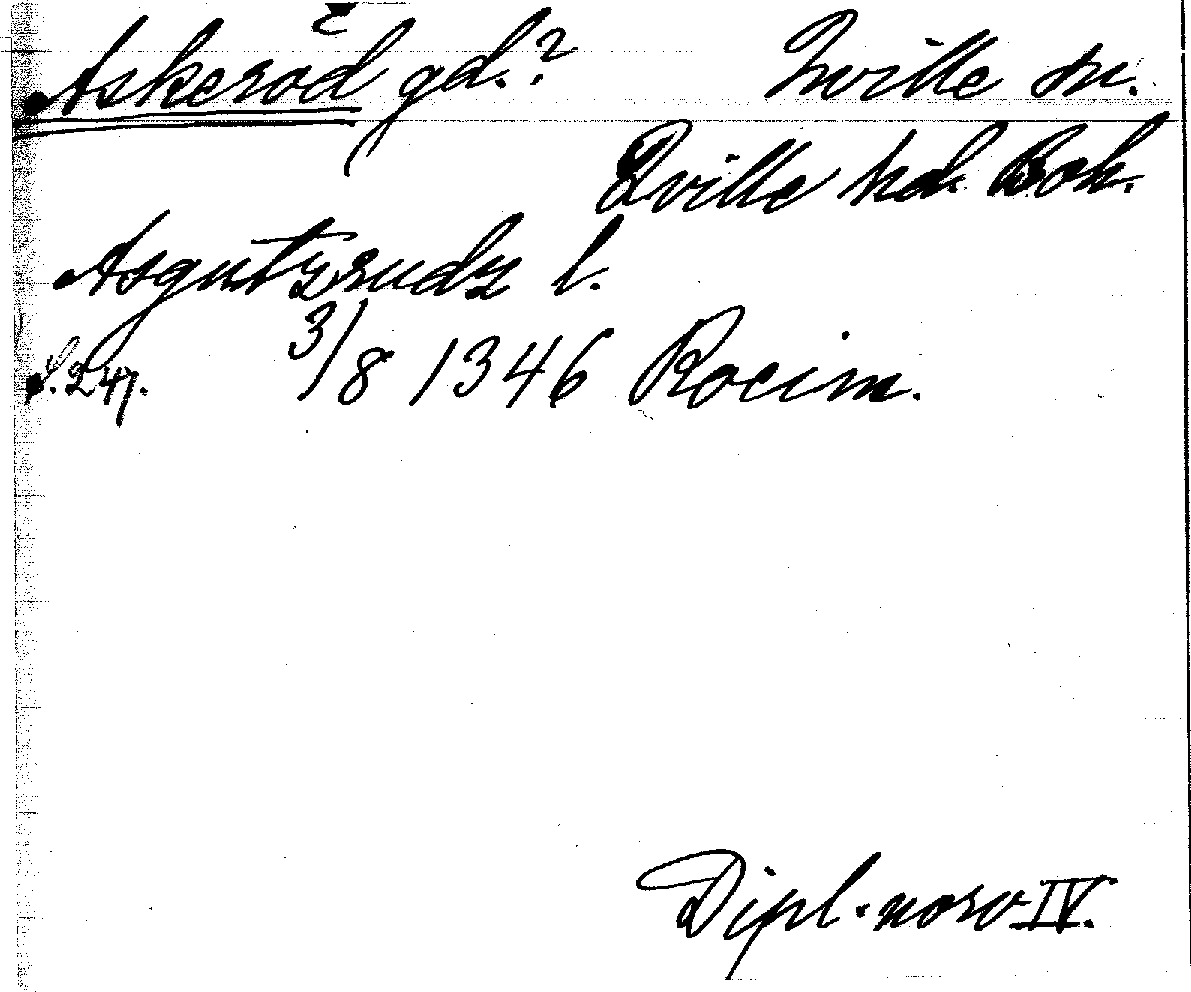 Askeröd gd.? Qville sn.
Qville hd. Boh.
Asgutzrudz l.
S. 247. 3/8 1346 Rocim.
Dipl. norv IV.